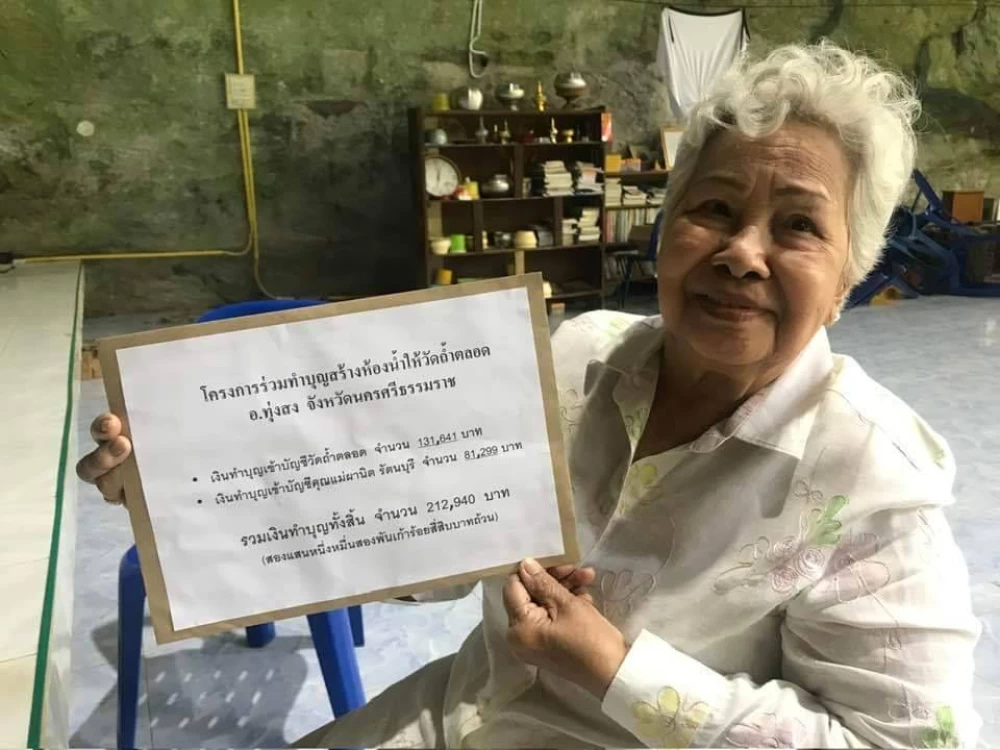 โครงการร่วมทำบุญสร้างห้องน้ำให้วัดถ้ำตลอด
อ.ทุ่งสง จังหวัดนครศรีธรรมราช
• เงินทำบุญเข้าบัญชีวัดถ้ำตลอด จำนวน 131,641 บาท
• เงินทำบุญเข้าบัญชีคุณแม่ผานิต รัตนบุรี จำนวน 81,299 บาท
รวมเงินทำบุญทั้งสิ้น จำนวน 212,940 บาท
(สองแสนหนึ่งหมื่นสองพันเก้าร้อยสี่สิบบาทถ้วน)